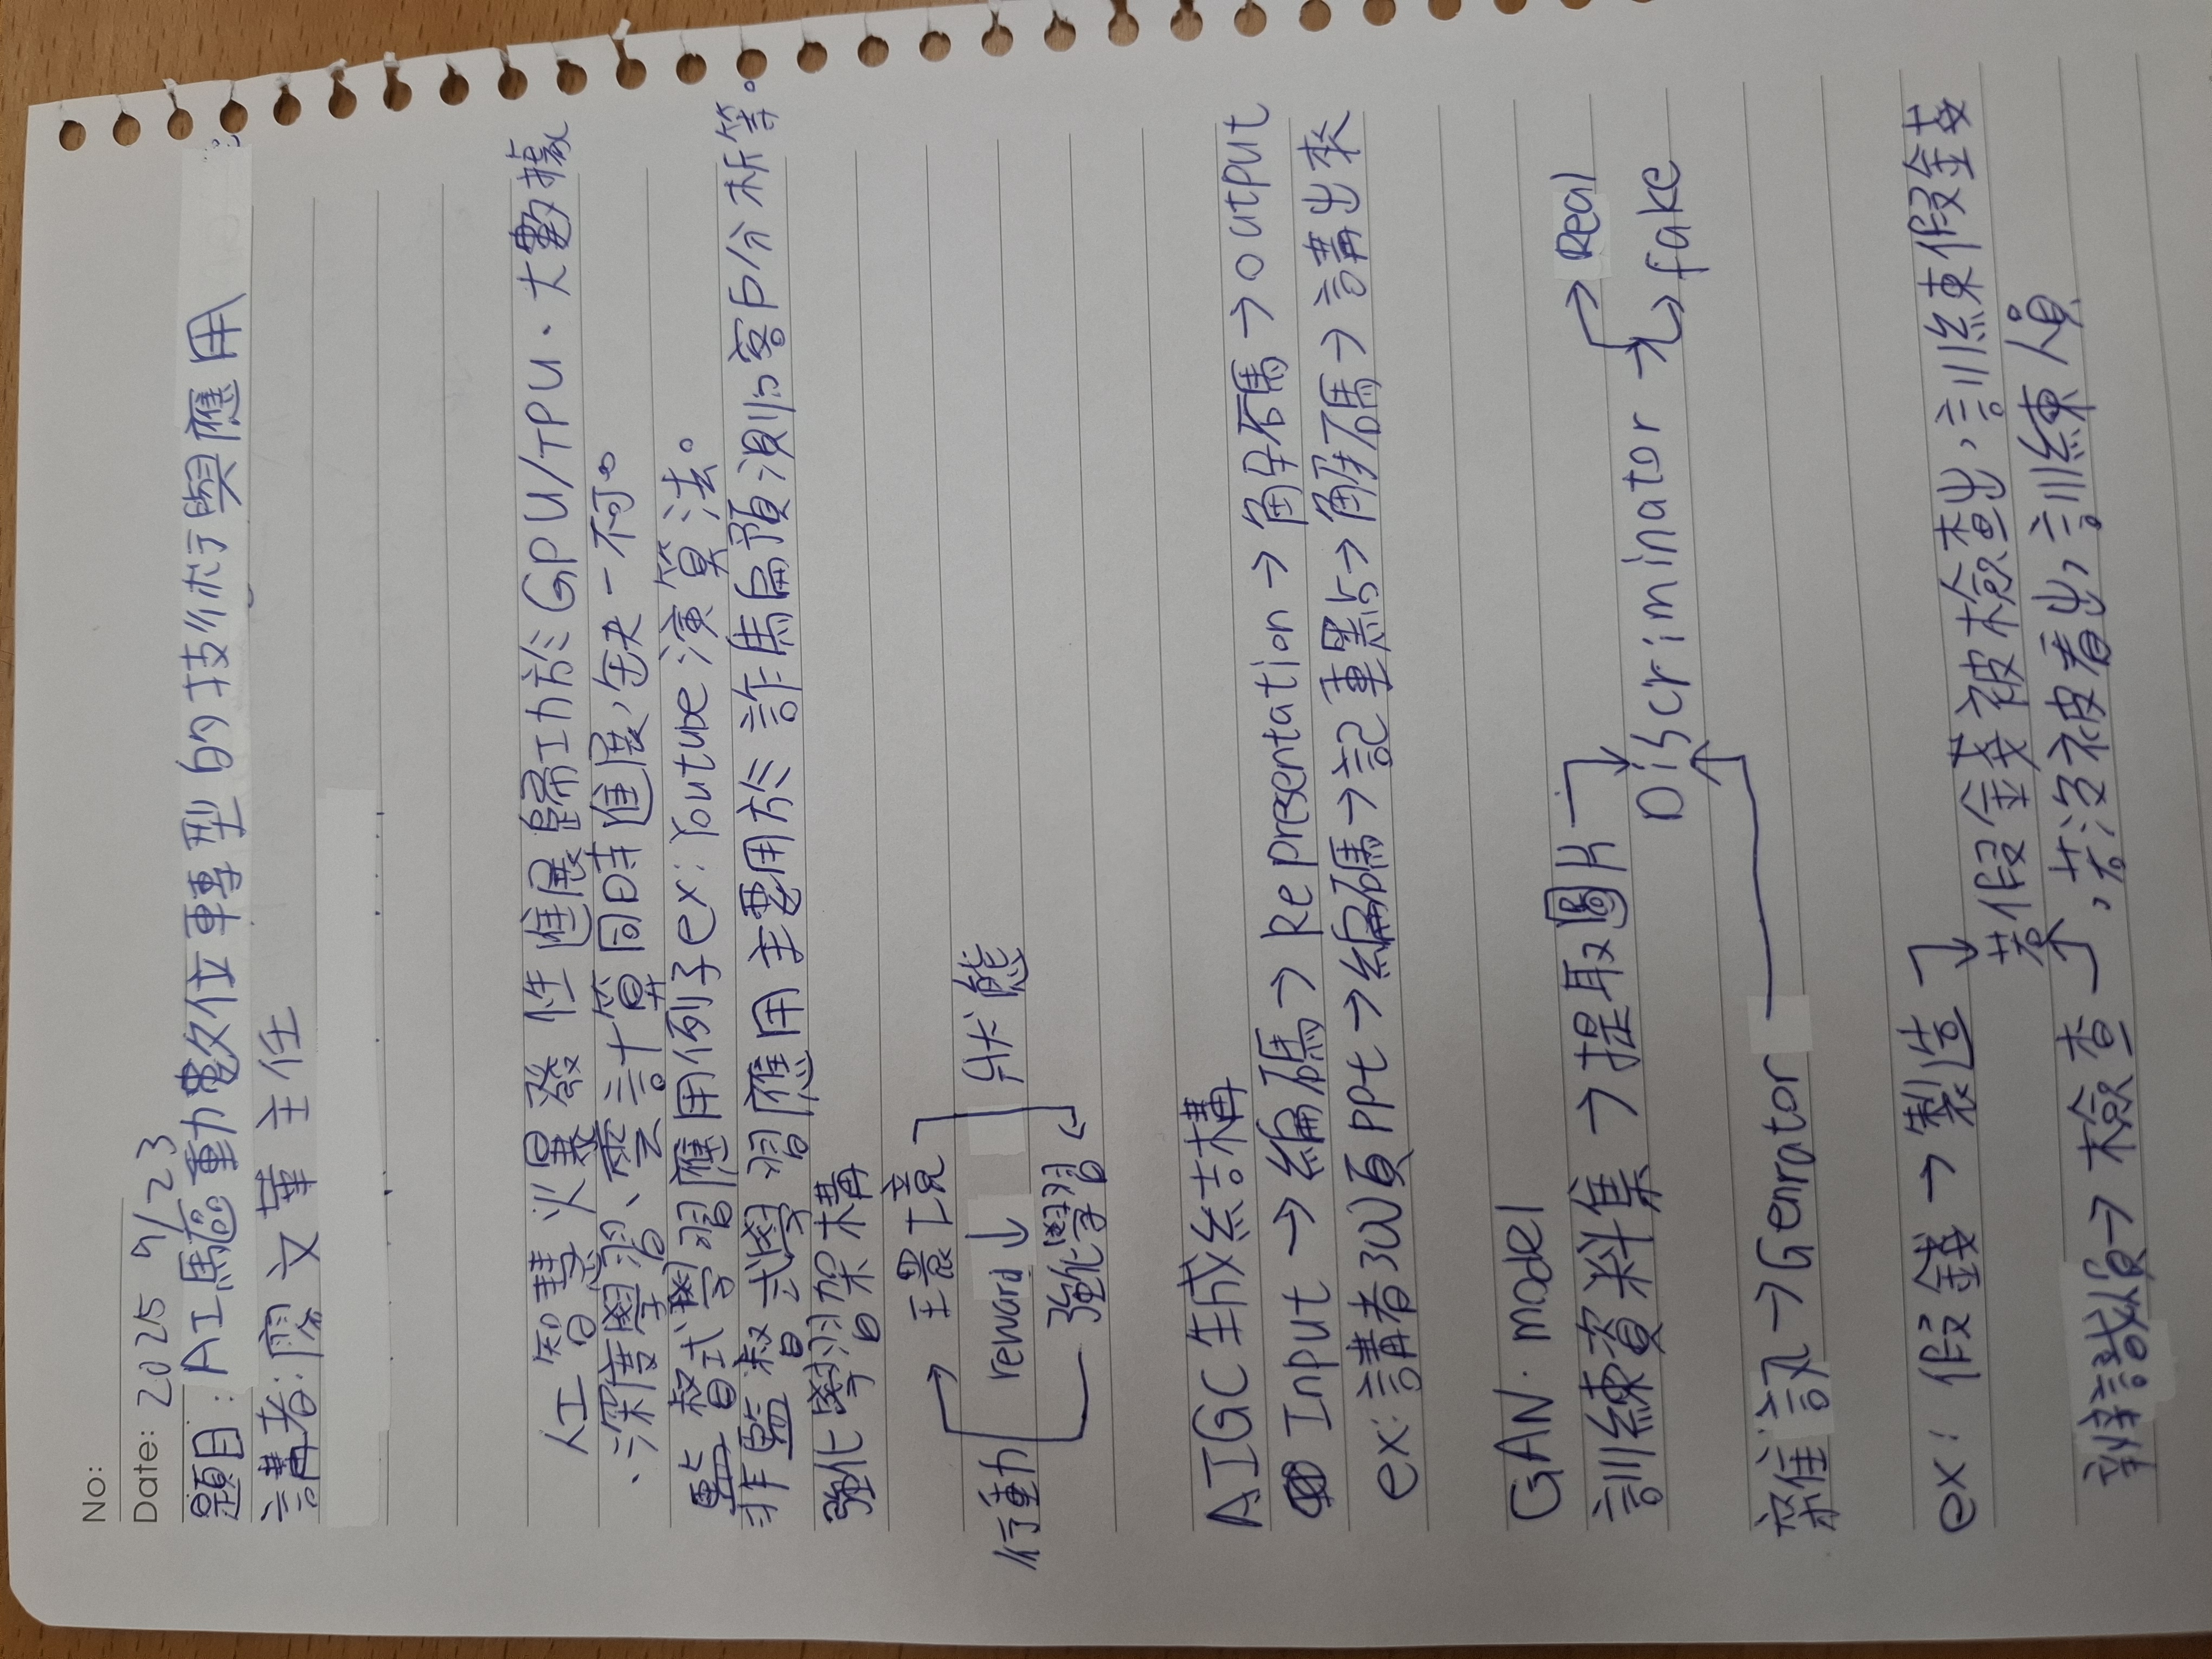 No:
Date: 2025 9/23
題目: AI驅動數位轉型的技術與應用
講者: 廖文華 主任
人工智慧火爆發性進展歸功於GPU/TPU、大數據
、深度學習、雲計算同時進展,缺一不可。
監督式學習應用例子ex: Youtube演算法。
非監督式學習應用主要用於詐騙預測、客戶分析等。
強化學習架構
環境
行動 reward↓ 狀態
強化學習
AIGC生成結構
Input→編碼→Representation→解碼→output
ex:講者300頁ppt→編碼→記重點→解碼→講出來
GAN model
訓練資料集→提取圖片
Real
Discriminator→
fake
雜訊→Genrator
ex: 假錢→製造
若假錢被檢查出,訓練假錢
辨識員→檢查 ,若沒被看出,訓練人員